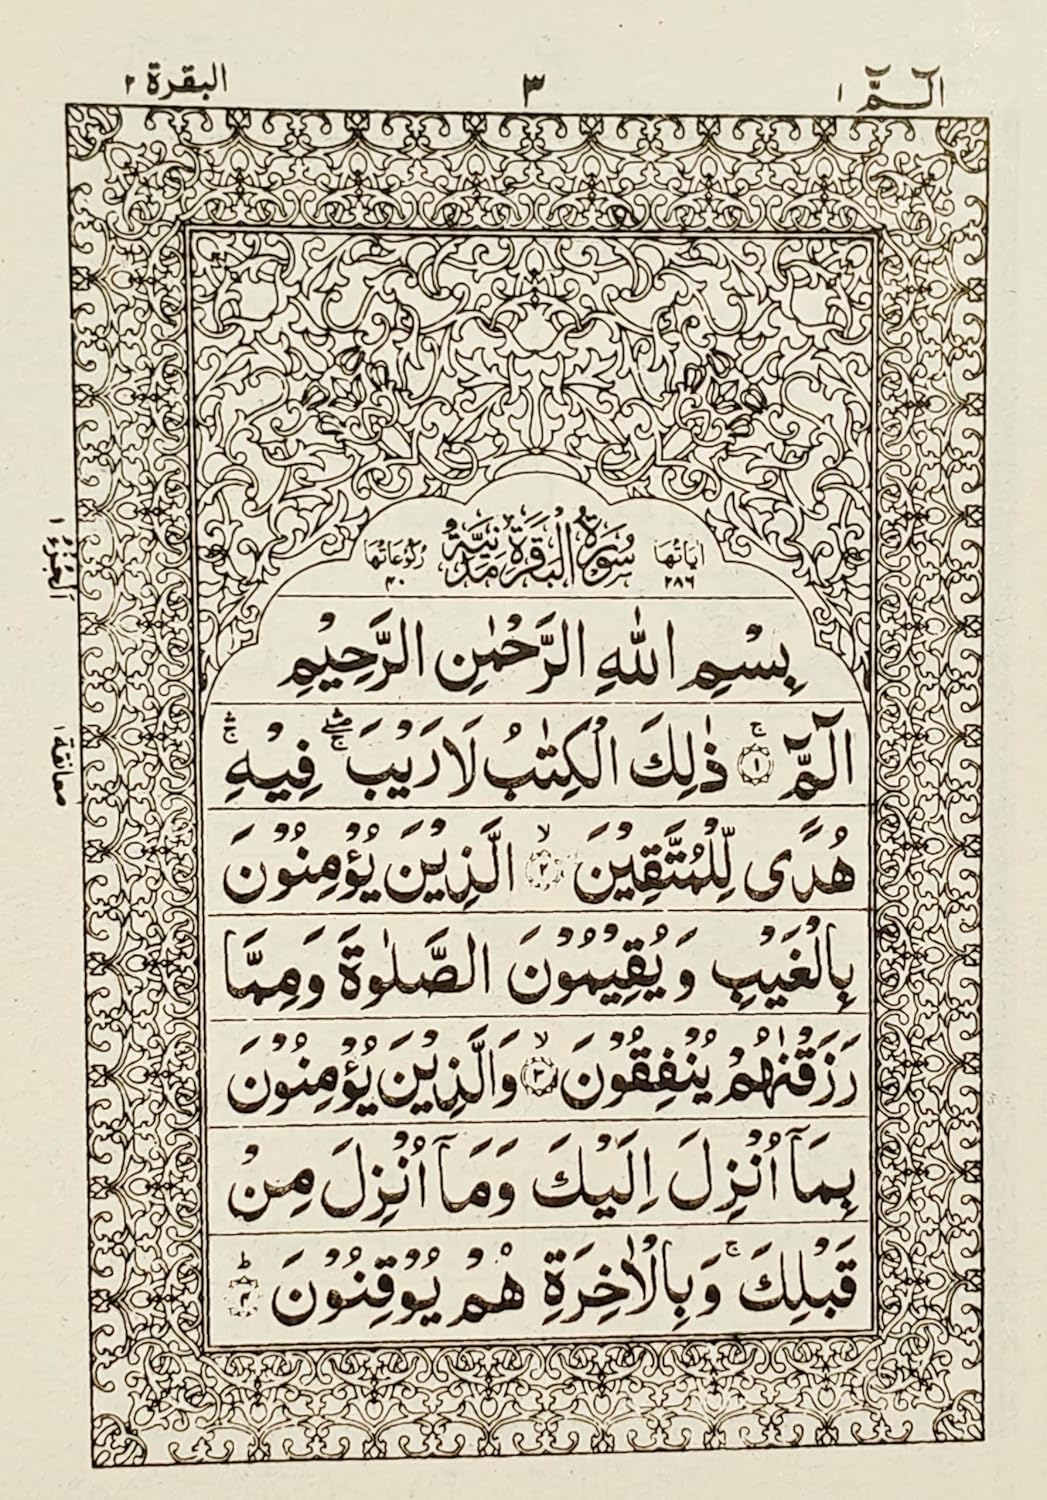 الٓمّٓ ١
٣
البقرة ٢
اٰيَاتُهَا ٢٨٦
سُوْرَةُ الْبَقَرَةِ مَدَنِيَّةٌ
رُكُوْعَاتُهَا ٤٠
بِسْمِ اللّٰهِ الرَّحْمٰنِ الرَّحِيْمِ
الٓمّٓ ۚ﴿١﴾ ذٰلِكَ الْكِتٰبُ لَا رَيْبَ ۛۖۚ فِيْهِ ۛۚ
هُدًى لِّلْمُتَّقِيْنَ ۙ﴿٢﴾ الَّذِيْنَ يُؤْمِنُوْنَ
بِالْغَيْبِ وَيُقِيْمُوْنَ الصَّلٰوةَ وَمِمَّا
رَزَقْنٰهُمْ يُنْفِقُوْنَ ۙ﴿٣﴾ وَالَّذِيْنَ يُؤْمِنُوْنَ
بِمَآ اُنْزِلَ اِلَيْكَ وَمَآ اُنْزِلَ مِنْ
قَبْلِكَ ۚ وَبِالْاٰخِرَةِ هُمْ يُوْقِنُوْنَ ؕ﴿٤﴾
الْجُزْءُ ١
معانقة ١